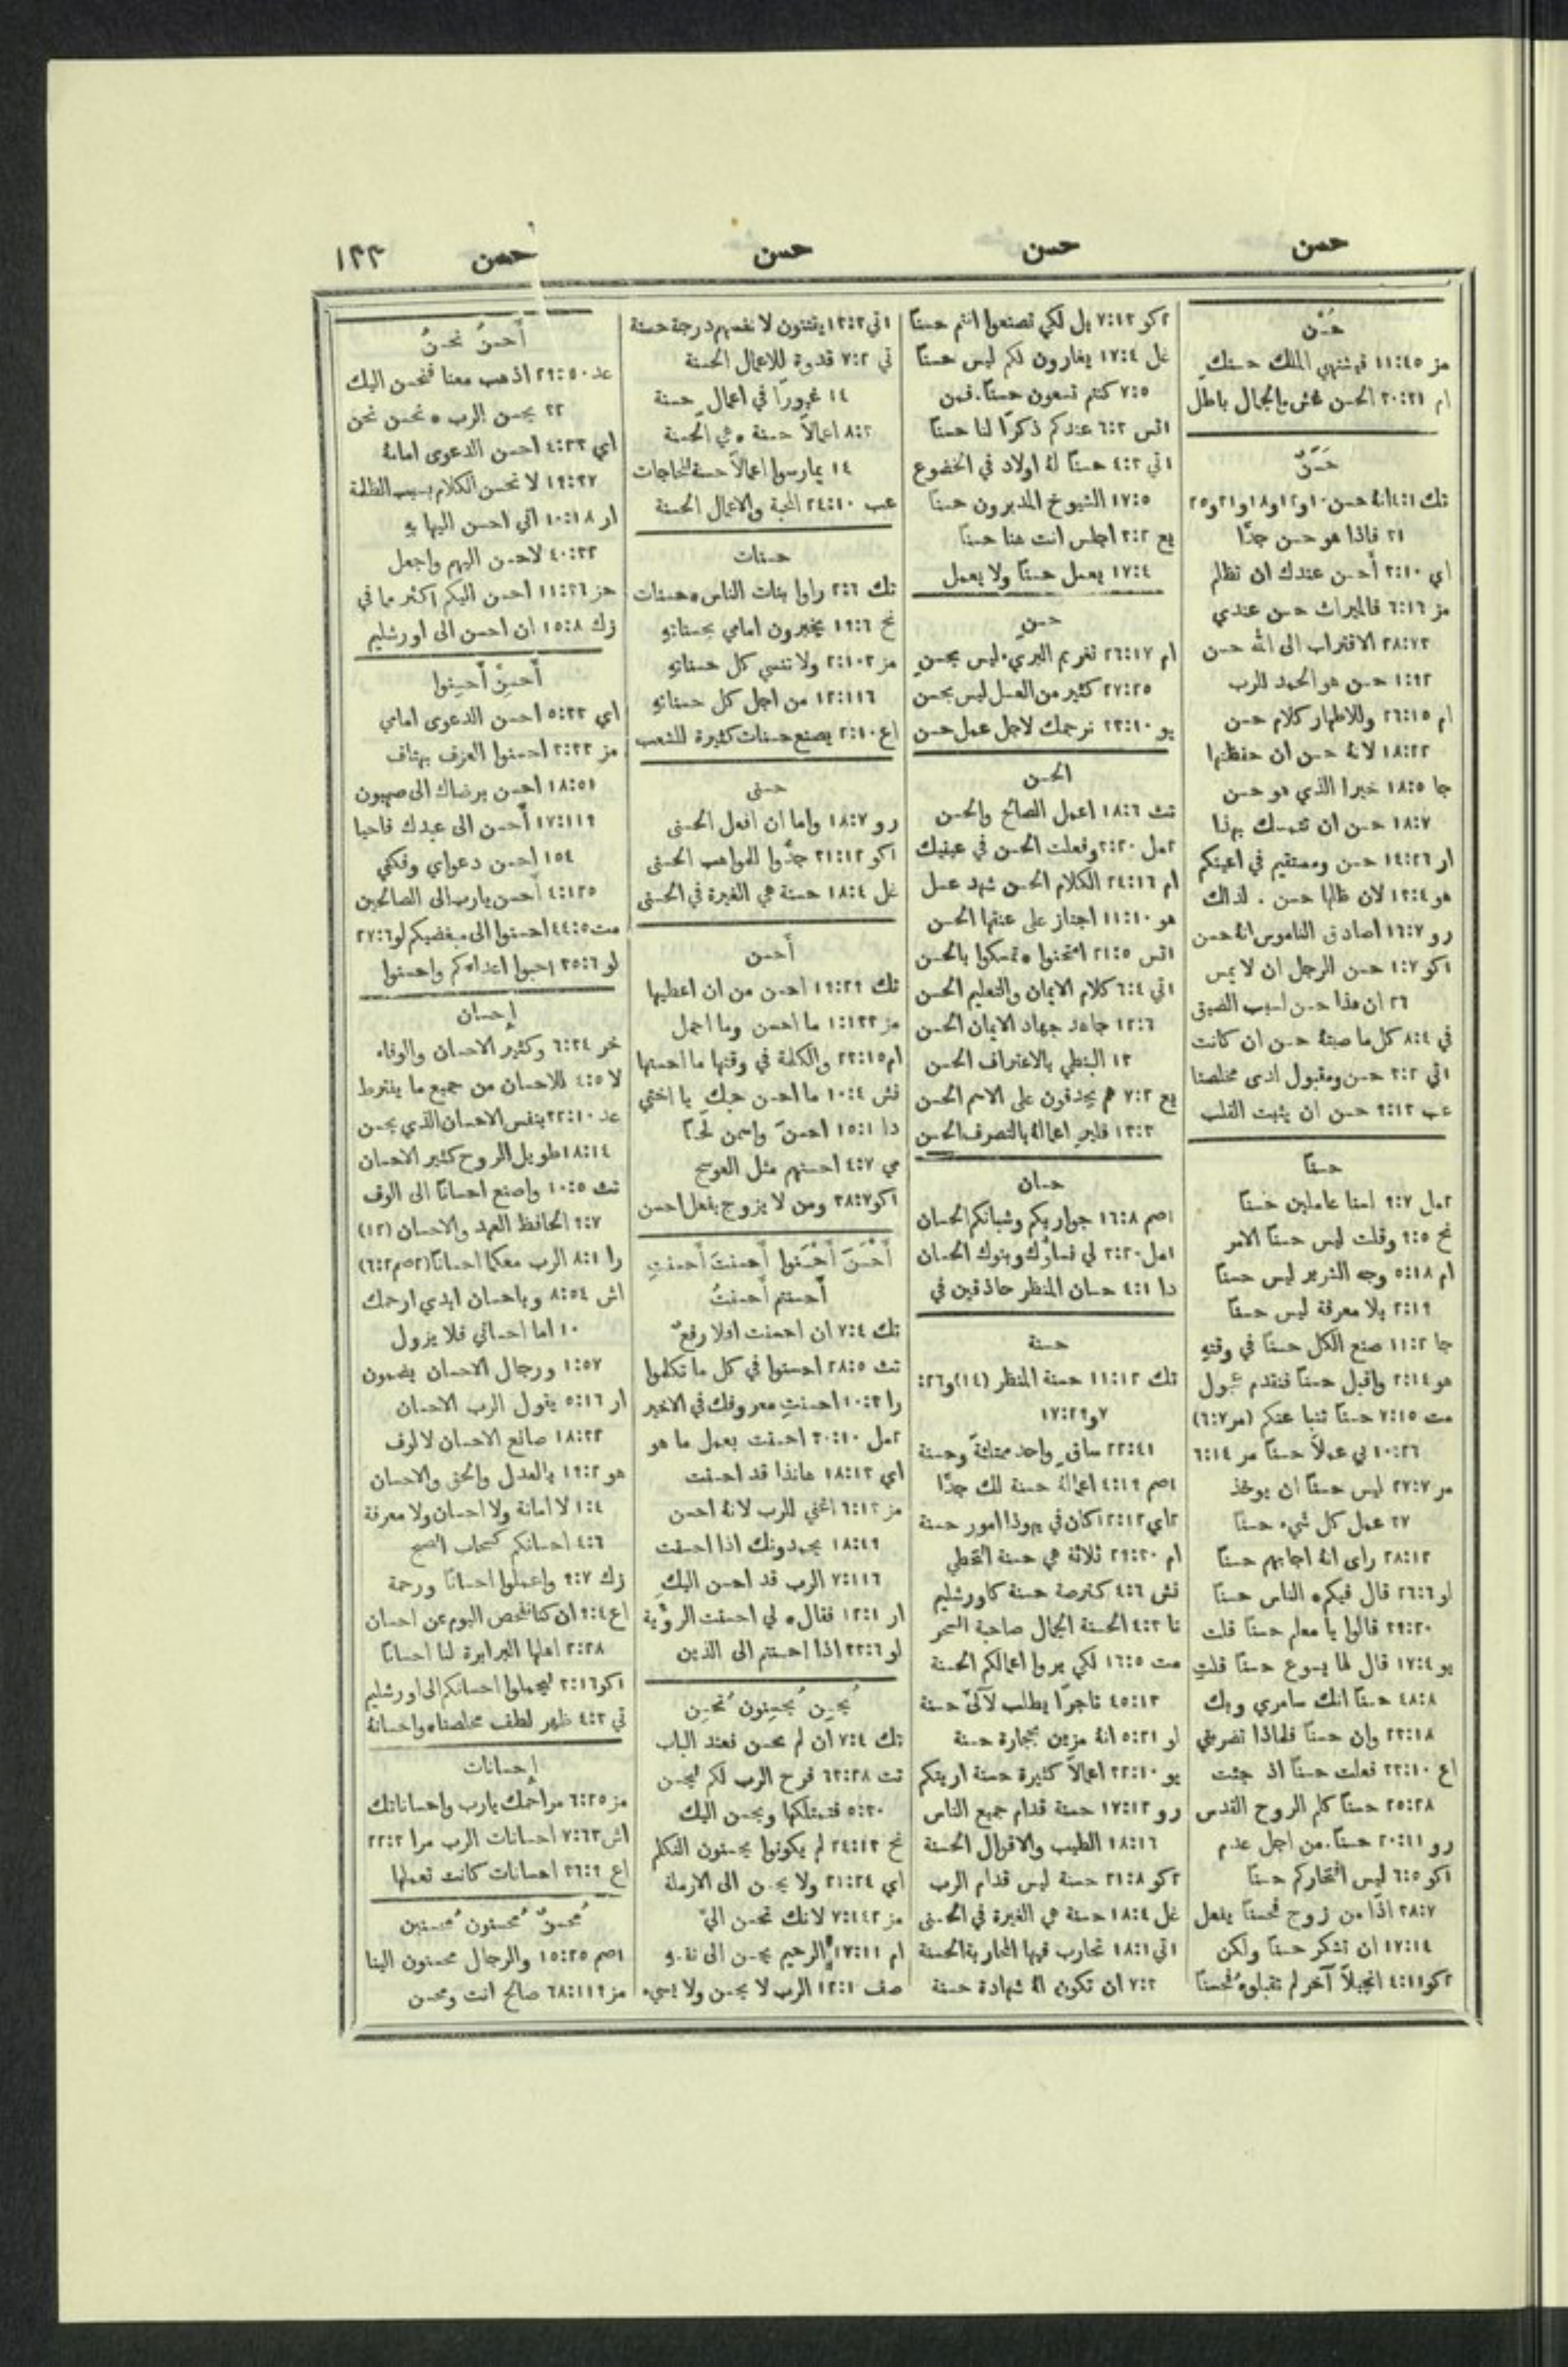 حسن
حسن
حسن
حسن
١٣٣
حُسْن
مز ١١:٤٥ فيشتهي الملك حسنكِ
ام ٣٠:٣١ الحسن غش والجمال باطل
حَسَنٌ
تك ٤:١ انهُ حسن ١٠ و١٢ و١٨ و٢١ و٢٥
٣١ فاذا هو حسن جدًّا
اي ٣:١٠ أحسن عندك ان تظلم
مز ٦:١٦ فالميراث حسن عندي
٢٨:٧٣ الاقتراب الى الله حسن
١:٩٢ حسن هو الحمد للرب
ام ٢٦:١٥ وللاطهار كلام حسن
١٨:٢٢ لانهُ حسن ان حفظتها
جا ١٨:٥ خيرا الذي هو حسن
١٨:٧ حسن ان تتمسك بهذا
ار ١٤:٢٦ حسن ومستقيم في اعينكم
هو ١٣:٤ لان ظلها حسن . لذلك
رو ١٦:٧ اصادق الناموس انهُ حسن
١كو ١:٧ حسن للرجل ان لا يمس
٢٦ ان هذا حسن لسبب الضيق
في ٨:٤ كل ما صيتهُ حسن ان كانت
١تي ٣:٢ حسن ومقبول لدى مخلصنا
عب ٩:١٣ حسن ان يثبت القلب
حسنًا
٢مل ٩:٧ لسنا عاملين حسنًا
نح ٩:٥ وقلت ليس حسنًا الامر
ام ٥:١٨ وجه الشرير ليس حسنًا
٢:١٩ بلا معرفة ليس حسنًا
جا ١١:٣ صنع الكل حسنًا في وقتهِ
هو ٢:١٤ واقبل حسنًا فنقدم عجول
مت ٧:١٥ حسنًا تنبا عنكم (مر ٦:٧)
١٠:٢٦ بي عملًا حسنًا مر ٦:١٤
مر ٢٧:٧ ليس حسنًا ان يوخذ
٣٧ عمل كل شيء حسنًا
٢٨:١٢ راى انهُ اجابهم حسنًا
لو ٢٦:٦ قال فيكم الناس حسنًا
٣٩:٢٠ قالوا يا معلم حسنًا قلت
يو ١٧:٤ قال لها يسوع حسنًا قلتِ
٤٨:٨ حسنًا انك سامري وبك
٢٣:١٨ وان حسنًا فلماذا تضربني
اع ٣٣:١٠ فعلت حسنًا اذ جئت
٢٥:٢٨ حسنًا كلم الروح القدس
رو ٢٠:١١ حسنًا. من اجل عدم
١كو ٦:٥ ليس افتخاركم حسنًا
٣٨:٧ اذًا من زوج فحسنًا يفعل
١٧:١٤ ان تشكر حسنًا ولكن
٢كو ٤:١١ انجيلًا آخر لم تقبلوهُ فحسنًا
٢كو ٧:١٣ بل لكي تصنعوا انتم حسنًا
غل ١٧:٤ يغارون لكم ليس حسنًا
٧:٥ كنتم تسعون حسنًا. فمن
١تس ٦:٣ عندكم ذكرًا لنا حسنًا
١تي ٤:٣ حسنًا لهُ اولاد في الخضوع
١٧:٥ الشيوخ المدبرون حسنًا
يع ٣:٢ اجلس انت هنا حسنًا
١٧:٤ يعمل حسنًا ولا يعمل
حسنٍ
ام ٢٦:١٧ تغريم البري ليس بحسنٍ
٢٧:٢٥ كثير من العسل ليس بحسن
يو ٣٣:١٠ نرجمك لاجل عمل حسن
الحسن
تث ١٨:٦ اعمل الصالح والحسن
٢مل ٣:٢٠ وفعلت الحسن في عينيك
ام ٢٤:١٦ الكلام الحسن شهد عسل
هو ١١:١٠ اجتاز على عنقها الحسن
١تس ٢١:٥ امتحنوا تمسكوا بالحسن
١تي ٦:٤ كلام الايمان والتعليم الحسن
١٢:٦ جاهد جهاد الايمان الحسن
١٣ البنطي بالاعتراف الحسن
يع ٧:٢ هم يجدفون على الاسم الحسن
١٣:٣ فليرِ اعمالهُ بالتصرف الحسن
حسان
١صم ١٦:٨ جواريكم وشبانكم الحسان
١مل ٣:٢٠ لي نساؤك وبنوك الحسان
دا ٤:١ حسان المنظر حاذقين في
حسنة
تك ١١:١٢ حسنة المنظر (١٤) و٢٦:
٧ و١٧:٢٩
٢٢:٤١ ساقٍ واحد ممتلئةً وحسنة
١صم ٤:١٩ اعمالهُ حسنة لك جدًّا
٢اي ١٢:١٢ كان في يهوذا امور حسنة
ام ٢٩:٣٠ ثلاثة هي حسنة التخطي
نش ٤:٦ كترصة حسنة كاورشليم
نا ٤:٣ الحسنة الجمال صاحبة السحر
مت ١٦:٥ لكي يروا اعمالكم الحسنة
٤٥:١٣ تاجرًا يطلب لآلئ حسنة
لو ٥:٢١ انهُ مزين بحجارة حسنة
يو ٣٢:١٠ اعمالًا كثيرة حسنة اريتكم
رو ١٧:١٢ حسنة قدام جميع الناس
١٨:١٦ الطيب والاقوال الحسنة
٢كو ٢١:٨ حسنة ليس قدام الرب
غل ١٨:٤ حسنة هي الغيرة في الحسنى
١تي ١٨:١ تحارب فيها المحاربة الحسنة
٧:٣ ان تكون لهُ شهادة حسنة
١تي ١٣:٣ يقتنون لانفسهم درجة حسنة
تي ٧:٢ قدوة للاعمال الحسنة
١٤ غيورًا في اعمالٍ حسنة
٨:٣ اعمالًا حسنة هي الحسنة
١٤ يمارسوا اعمالًا حسنة للحاجات
عب ٢٤:١٠ المحبة والاعمال الحسنة
حسنات
تك ٢:٦ راوا بنات الناس حسنات
نح ١٩:٦ يخبرون امامي بحسناتهِ
مز ٢:١٠٣ ولا تنسي كل حسناتهِ
١٢:١١٦ من اجل كل حسناتهِ
اع ٢:١٠ يصنع حسنات كثيرة للشعب
حسنى
رو ١٨:٧ واما ان افعل الحسنى
١كو ٣١:١٢ جدّوا للمواهب الحسنى
غل ١٨:٤ حسنة هي الغيرة في الحسنى
أحسن
تك ١٩:٢٩ احسن من ان اعطيها
مز ١:١٣٣ ما احسن وما اجمل
ام ٢٣:١٥ والكلمة في وقتها ما احسنها
نش ١٠:٤ ما احسن حبكِ يا اختي
دا ١٥:١ احسنَ واسمن لحمًا
مي ٤:٧ احسنهم مثل العوسج
١كو ٣٨:٧ ومن لا يزوج يفعل احسن
أَحْسَنَ أَحْسَنوا أَحسنتَ أَحسنتِ
أَحسنتم أَحسنتُ
تك ٧:٤ ان احسنت افلا رفعٌ
تث ٢٨:٥ احسنوا في كل ما تكلموا
را ١٠:٣ احسنتِ معروفك في الاخير
٢مل ٣٠:١٠ احسنت بعمل ما هو
اي ١٨:١٣ هانذا قد احسنت
مز ٦:١٣ اغني للرب لانهُ احسن
١٨:٤٩ يحمدونك اذا احسنت
٧:١١٦ الرب قد احسن اليكِ
ار ١٢:١ فقال لي احسنت الرؤية
لو ٣٣:٦ اذا احسنتم الى الذين
يُحسِن يُحسِنون تُحسِن
تك ٧:٤ ان لم تحسن فعند الباب
تث ٦٣:٢٨ فرح الرب لكم ليحسن
٥:٣٠ فتمتلكها ويحسن اليك
نح ٢٤:١٣ لم يكونوا يحسنون التكلم
اي ٢١:٢٤ ولا يحسن الى الارملة
مز ٧:١٤٢ لانك تحسن اليَّ
ام ١٧:١١ الرحيم يحسن الى نفسهِ
صف ١٢:١ الرب لا يحسن ولا يسيء
أُحسنُ نُحسنُ
عد ٢٩:٥٠ اذهب معنا فنحسن اليك
٣٢ يحسن الرب نحسن نحن
اي ٤:٣٣ احسن الدعوى امامهُ
١٩:٣٧ لا نحسن الكلام بسبب الظلمة
ار ١٠:١٨ اني احسن اليها بهِ
٤٠:٣٢ لاحسن اليهم واجعل
حز ١١:٣٦ احسن اليكم اكثر مما في
زك ١٥:٨ ان احسن الى اورشليم
أَحسِنْ أَحسِنوا
اي ٥:٣٣ احسن الدعوى امامي
مز ٣:٣٣ احسنوا العزف بهتاف
١٨:٥١ احسن برضاك الى صهيون
١٧:١١٩ أَحسن الى عبدك فاحيا
١٥٤ احسن دعواي وفكني
٤:١٢٥ أَحسن يارب الى الصالحين
مت ٤٤:٥ احسنوا الى مبغضيكم لو ٢٧:٦
لو ٣٥:٦ احبوا اعداءكم واحسنوا
إِحسان
خر ٦:٣٤ وكثير الاحسان والوفاء
لا ٤:٥ للاحسان من جميع ما يفترط
عد ٣٢:١٠ بنفس الاحسان الذي يحسن
١٨:١٤ طويل الروح كثير الاحسان
تث ١٠:٥ واصنع احسانًا الى الوف
٩:٧ الحافظ العهد والاحسان (١٢)
را ٨:١ الرب معكما احسانًا (٢صم ٦:٢)
اش ٨:٥٤ وباحسان ابدي ارحمك
١٠ اما احساني فلا يزول
١:٥٧ ورجال الاحسان يضمون
ار ٥:١٦ يقول الرب الاحسان
١٨:٣٢ صانع الاحسان لالوف
هو ١٩:٢ والعدل والحق والاحسان
١:٤ لا امانة ولا احسان ولا معرفة
٤:٦ احسانكم كسحاب الصبح
زك ٩:٧ واعملوا احسانًا ورحمة
اع ٩:٤ ان كنا نفحص اليوم عن احسان
٢:٢٨ اهلها البرابرة لنا احسانًا
١كو ٣:١٦ ليحملوا احسانكم الى اورشليم
تي ٤:٣ ظهر لطف مخلصنا واحسانهُ
إِحسانات
مز ٦:٢٥ مراحمك يارب واحساناتك
اش ٧:٦٣ احسانات الرب مرا ٢٢:٣
اع ٣٦:٩ احسانات كانت تعملها
مُحسنٌ مُحسنون مُحسنين
١صم ١٥:٢٥ والرجال محسنون الينا
مز ٦٨:١١٩ صالح انت ومحسن